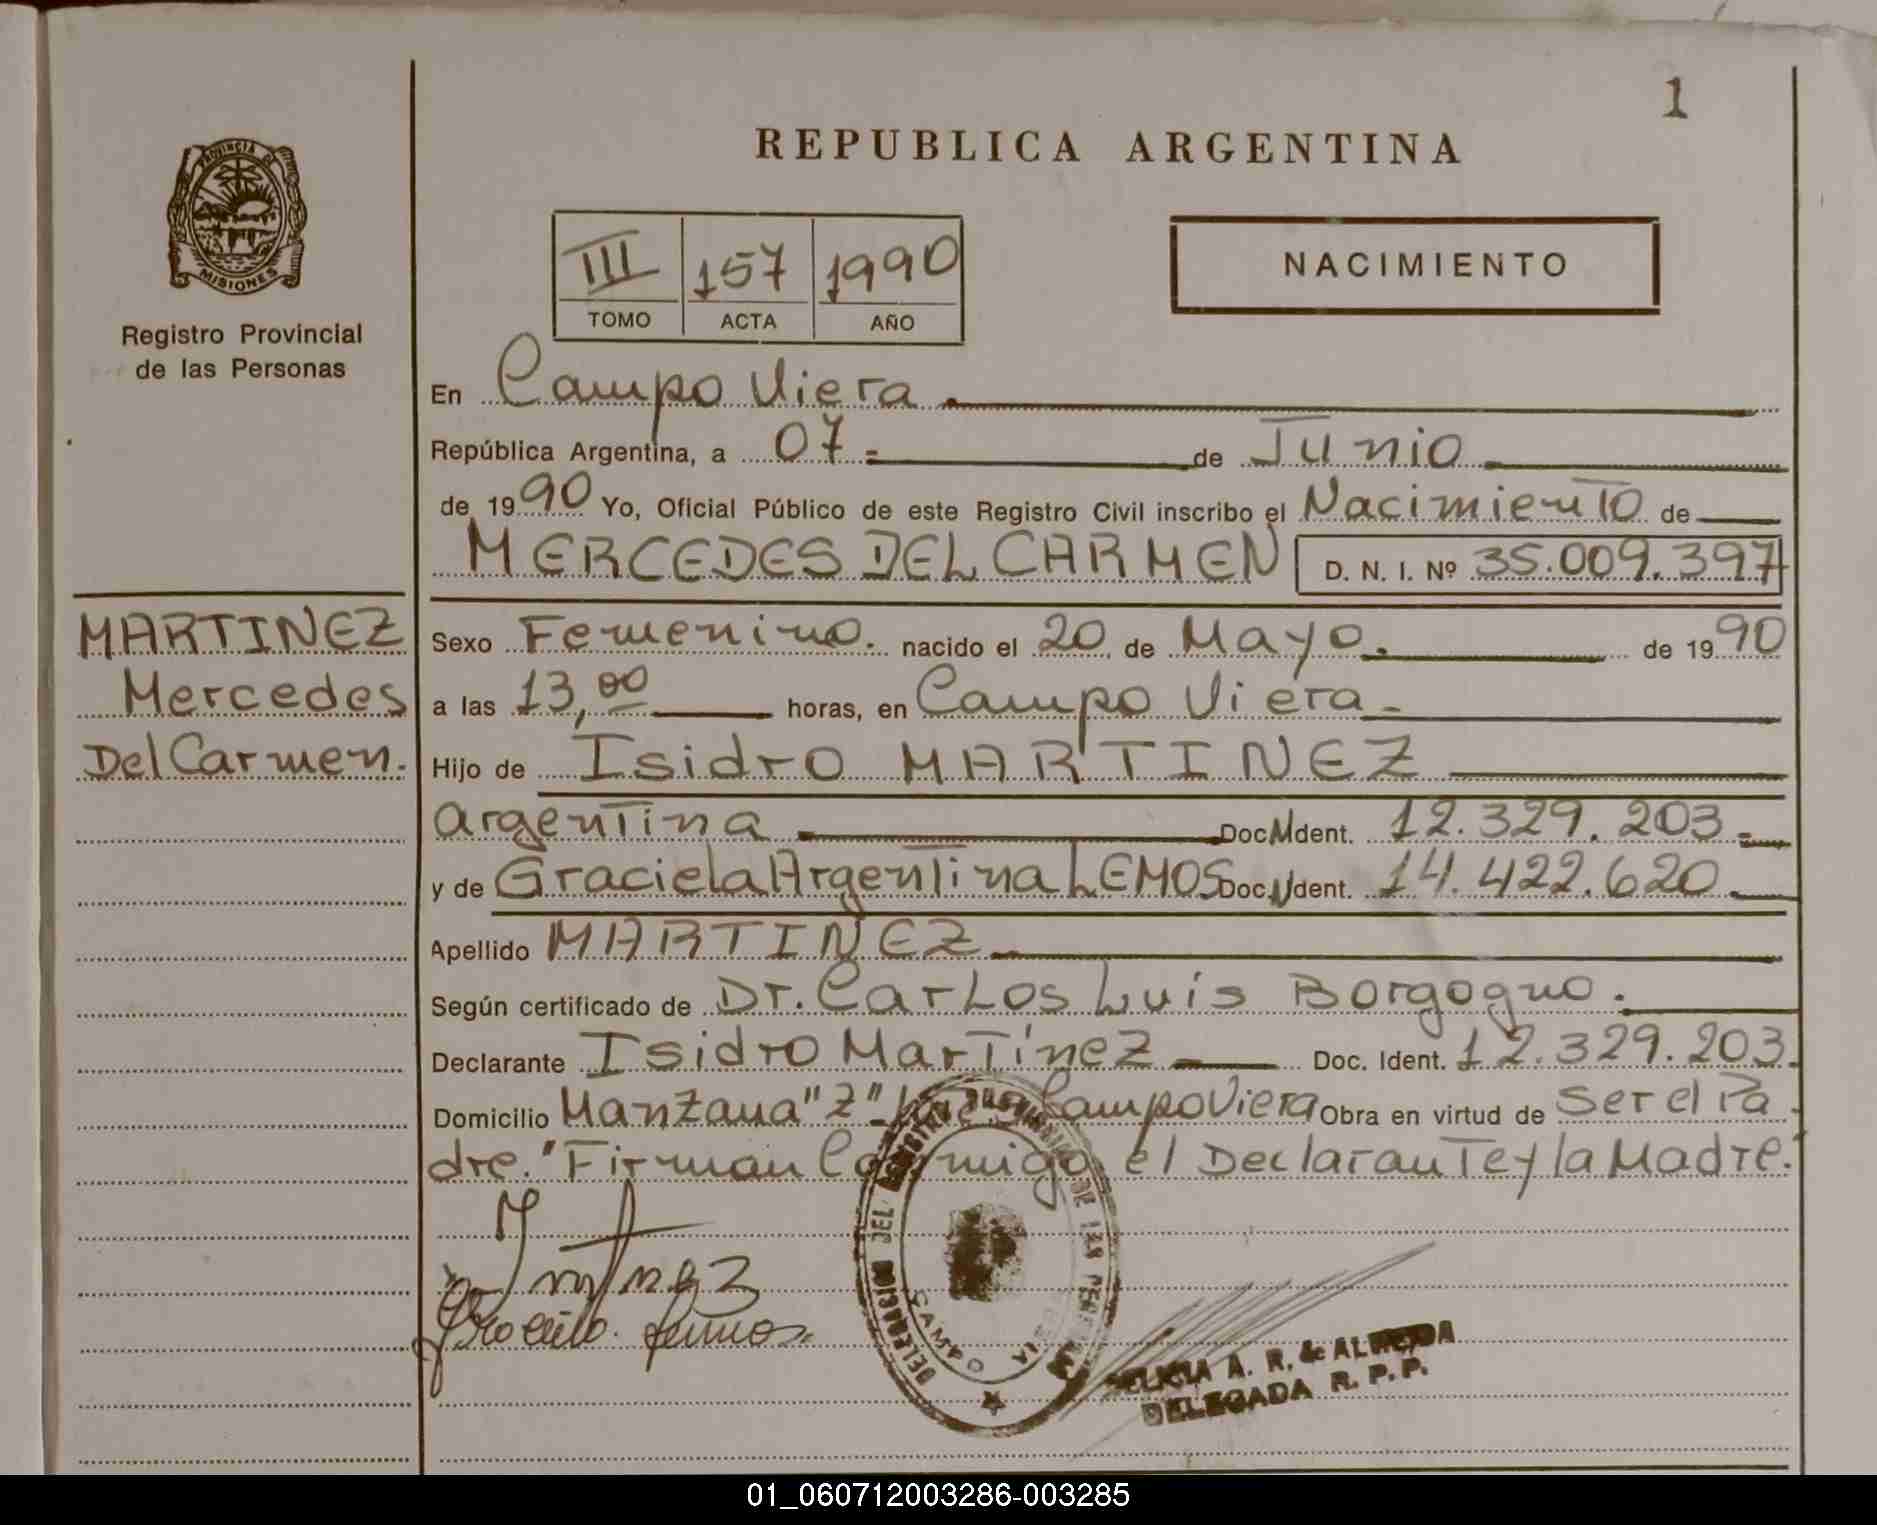 1
REPUBLICA ARGENTINA
PROVINCIA DE
MISIONES
Registro Provincial
de las Personas
III 157 1990
TOMO ACTA AÑO
NACIMIENTO
En Campo Viera
República Argentina, a 07 de Junio
de 1990 Yo, Oficial Público de este Registro Civil inscribo el Nacimiento de
MERCEDES DEL CARMEN D. N. I. Nº 35.009.397
MARTINEZ
Mercedes
Del Carmen.
Sexo Femenino. nacido el 20 de Mayo. de 1990
a las 13,00 horas, en Campo Viera
Hijo de Isidro MARTINEZ
argentina Doc. Ident. 12.329.203
y de Graciela Argentina LEMOS Doc. Ident. 14.422.620
Apellido MARTINEZ
Según certificado de Dr. Carlos Luis Borgogno.
Declarante Isidro Martínez Doc. Ident. 12.329.203
Domicilio Manzana "Z" Campo Viera Obra en virtud de Ser el Pa
dre." Firman Conmigo el Declarante y la Madre."
DELEGACION DEL REGISTRO DE LAS
CAMPO
A. R. de ALMEIDA
DELEGADA R. P. P.
01_060712003286-003285